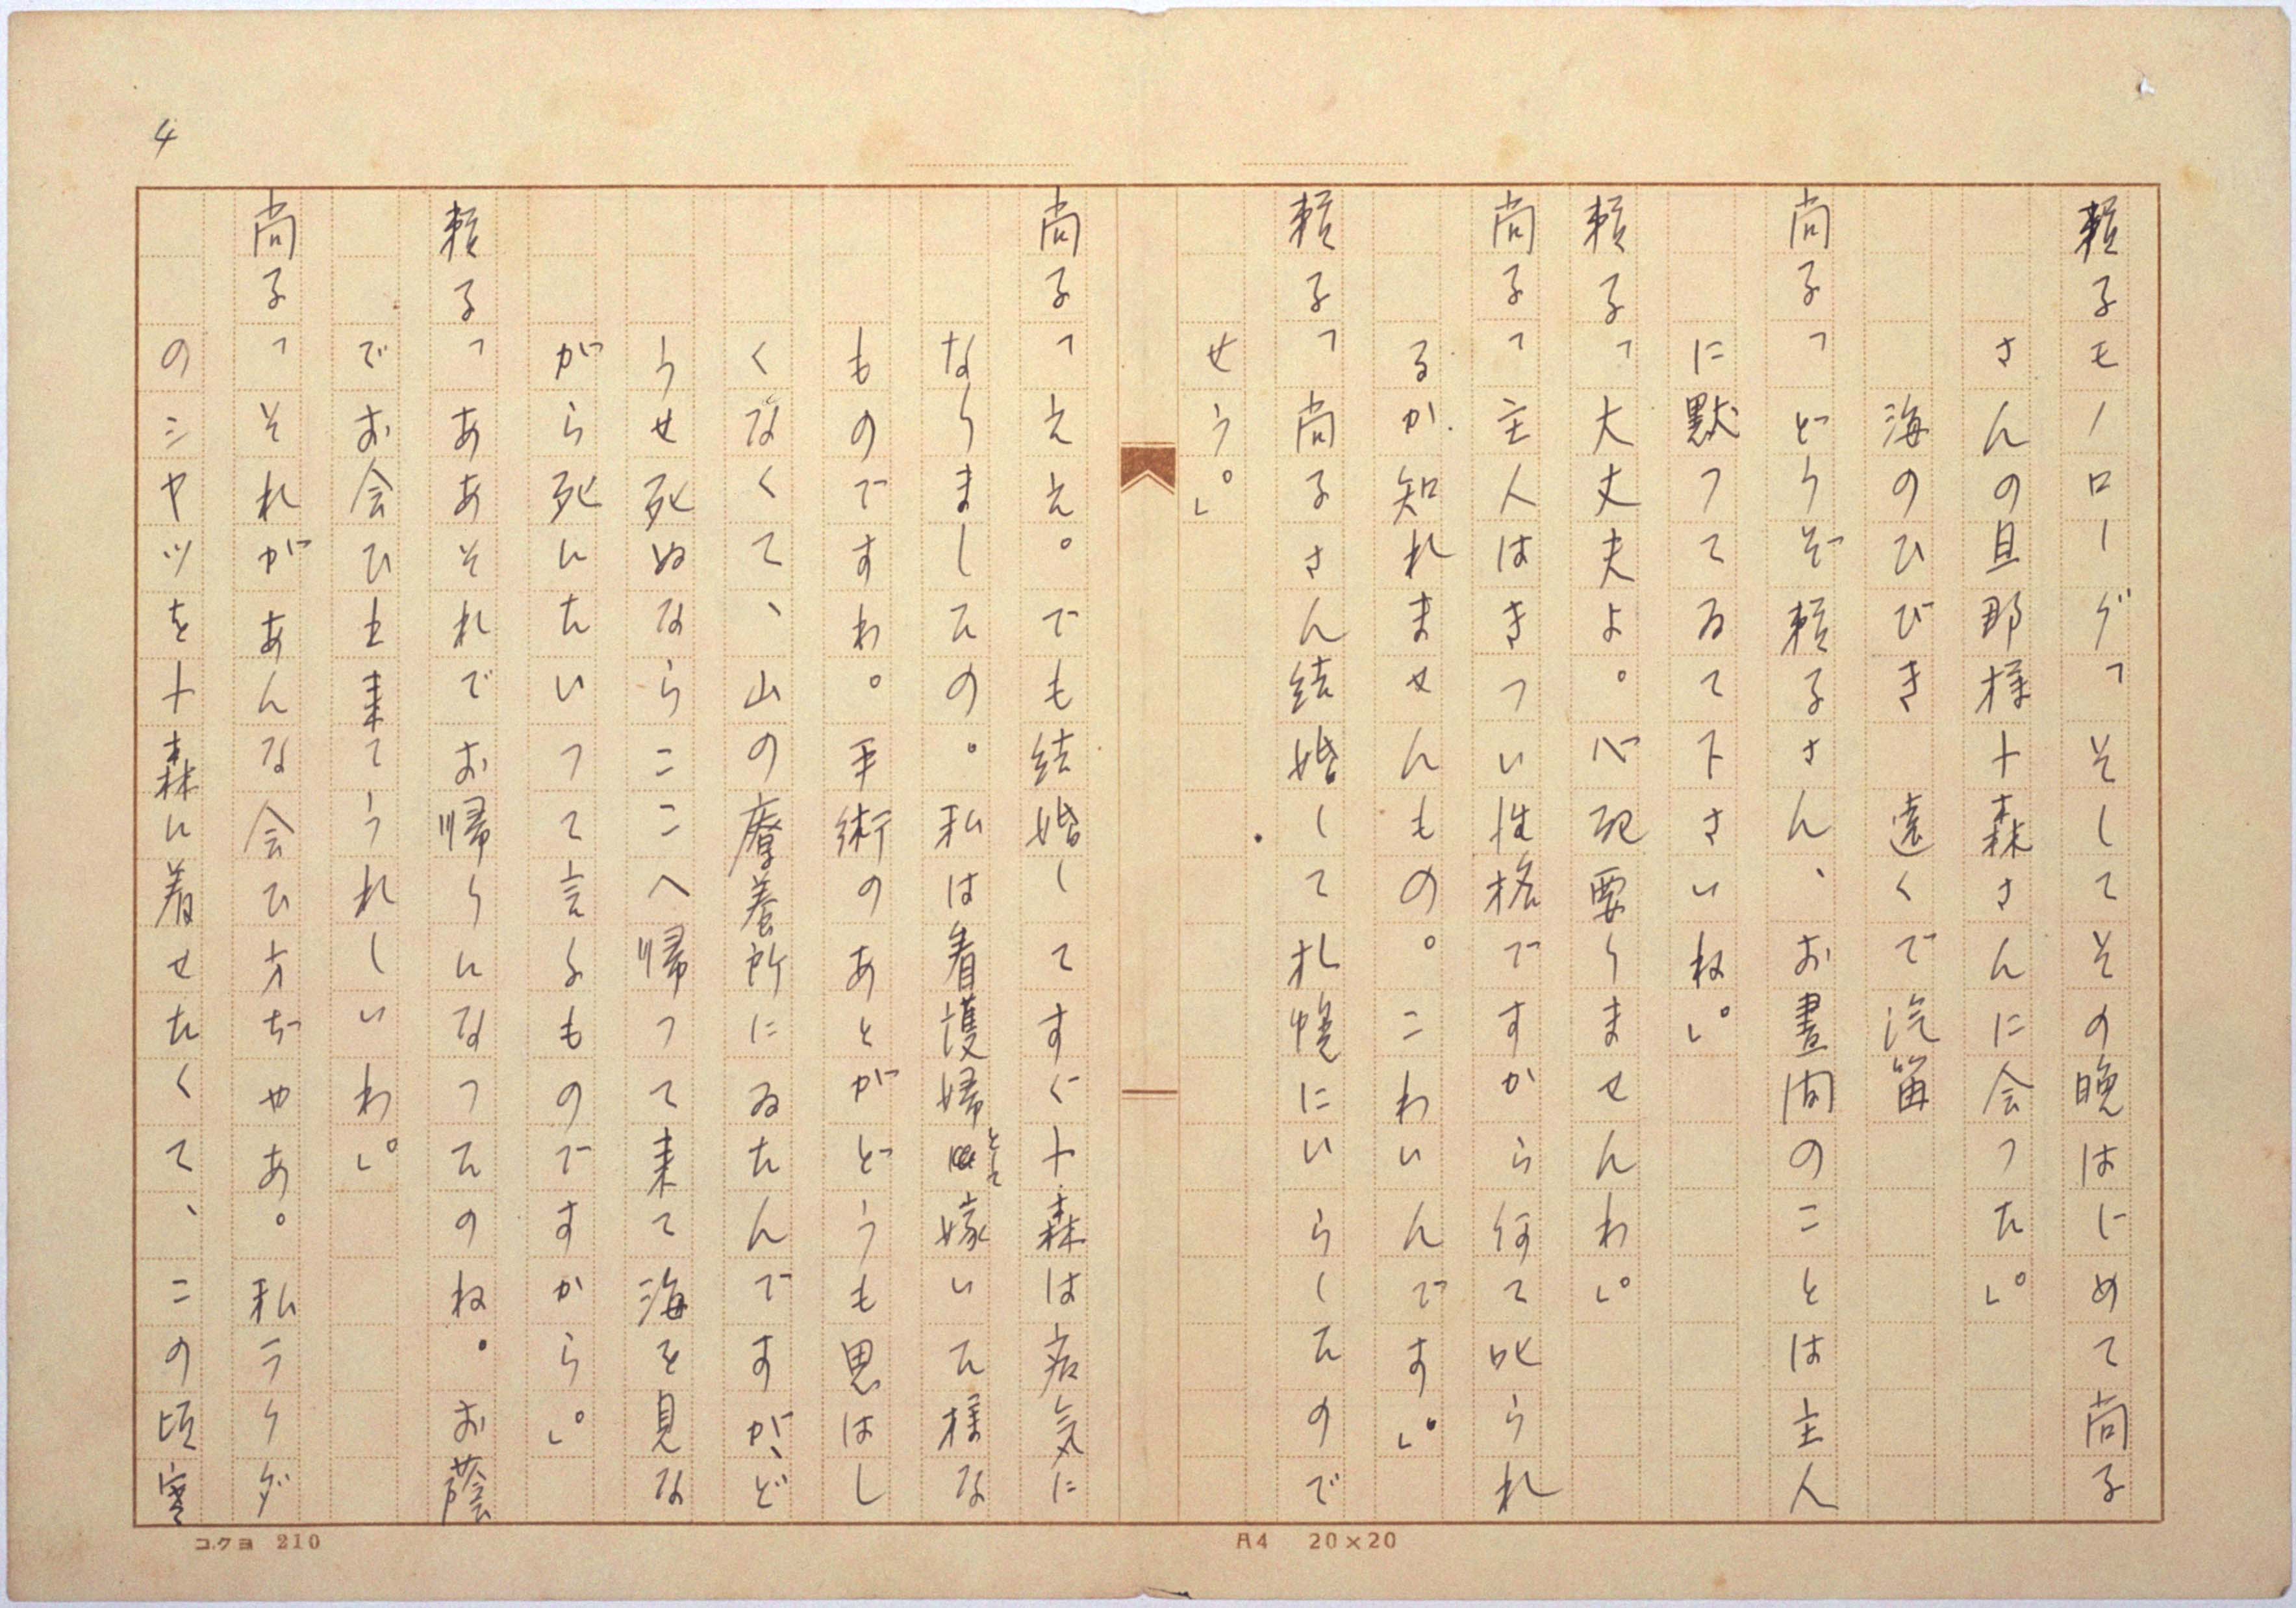 4
頼子モノローグ「そしてその晩はじめて尚子
さんの旦那様十森さんに会つた。」
海のひびき　遠くで汽笛
尚子「どうぞ頼子さん、お晝間のことは主人
に黙つてゐて下さいね。」
頼子「大丈夫よ。心配要りませんわ。」
尚子「主人はきつい性格ですから何て叱られ
るか知れませんもの。こわいんです。」
頼子「尚子さん結婚して札幌にいらしたので
せう。」
尚子「ええ。でも結婚してすぐ十森は病気に
なりましたの。私は看護婦として嫁いた様な
ものですわ。手術のあとがどうも思はし
くなくて、山の療養所にゐたんですが、ど
うせ死ぬならここへ帰つて来て海を見な
がら死にたいつて言ふものですから。」
頼子「ああそれでお帰りになつたのね。お蔭
でお会ひ出来てうれしいわ。」
尚子「それがあんな会ひ方ぢやあ。私ラクダ
のシヤツを十森に着せたくて、この頃寒
コクヨ 210
A4 20×20